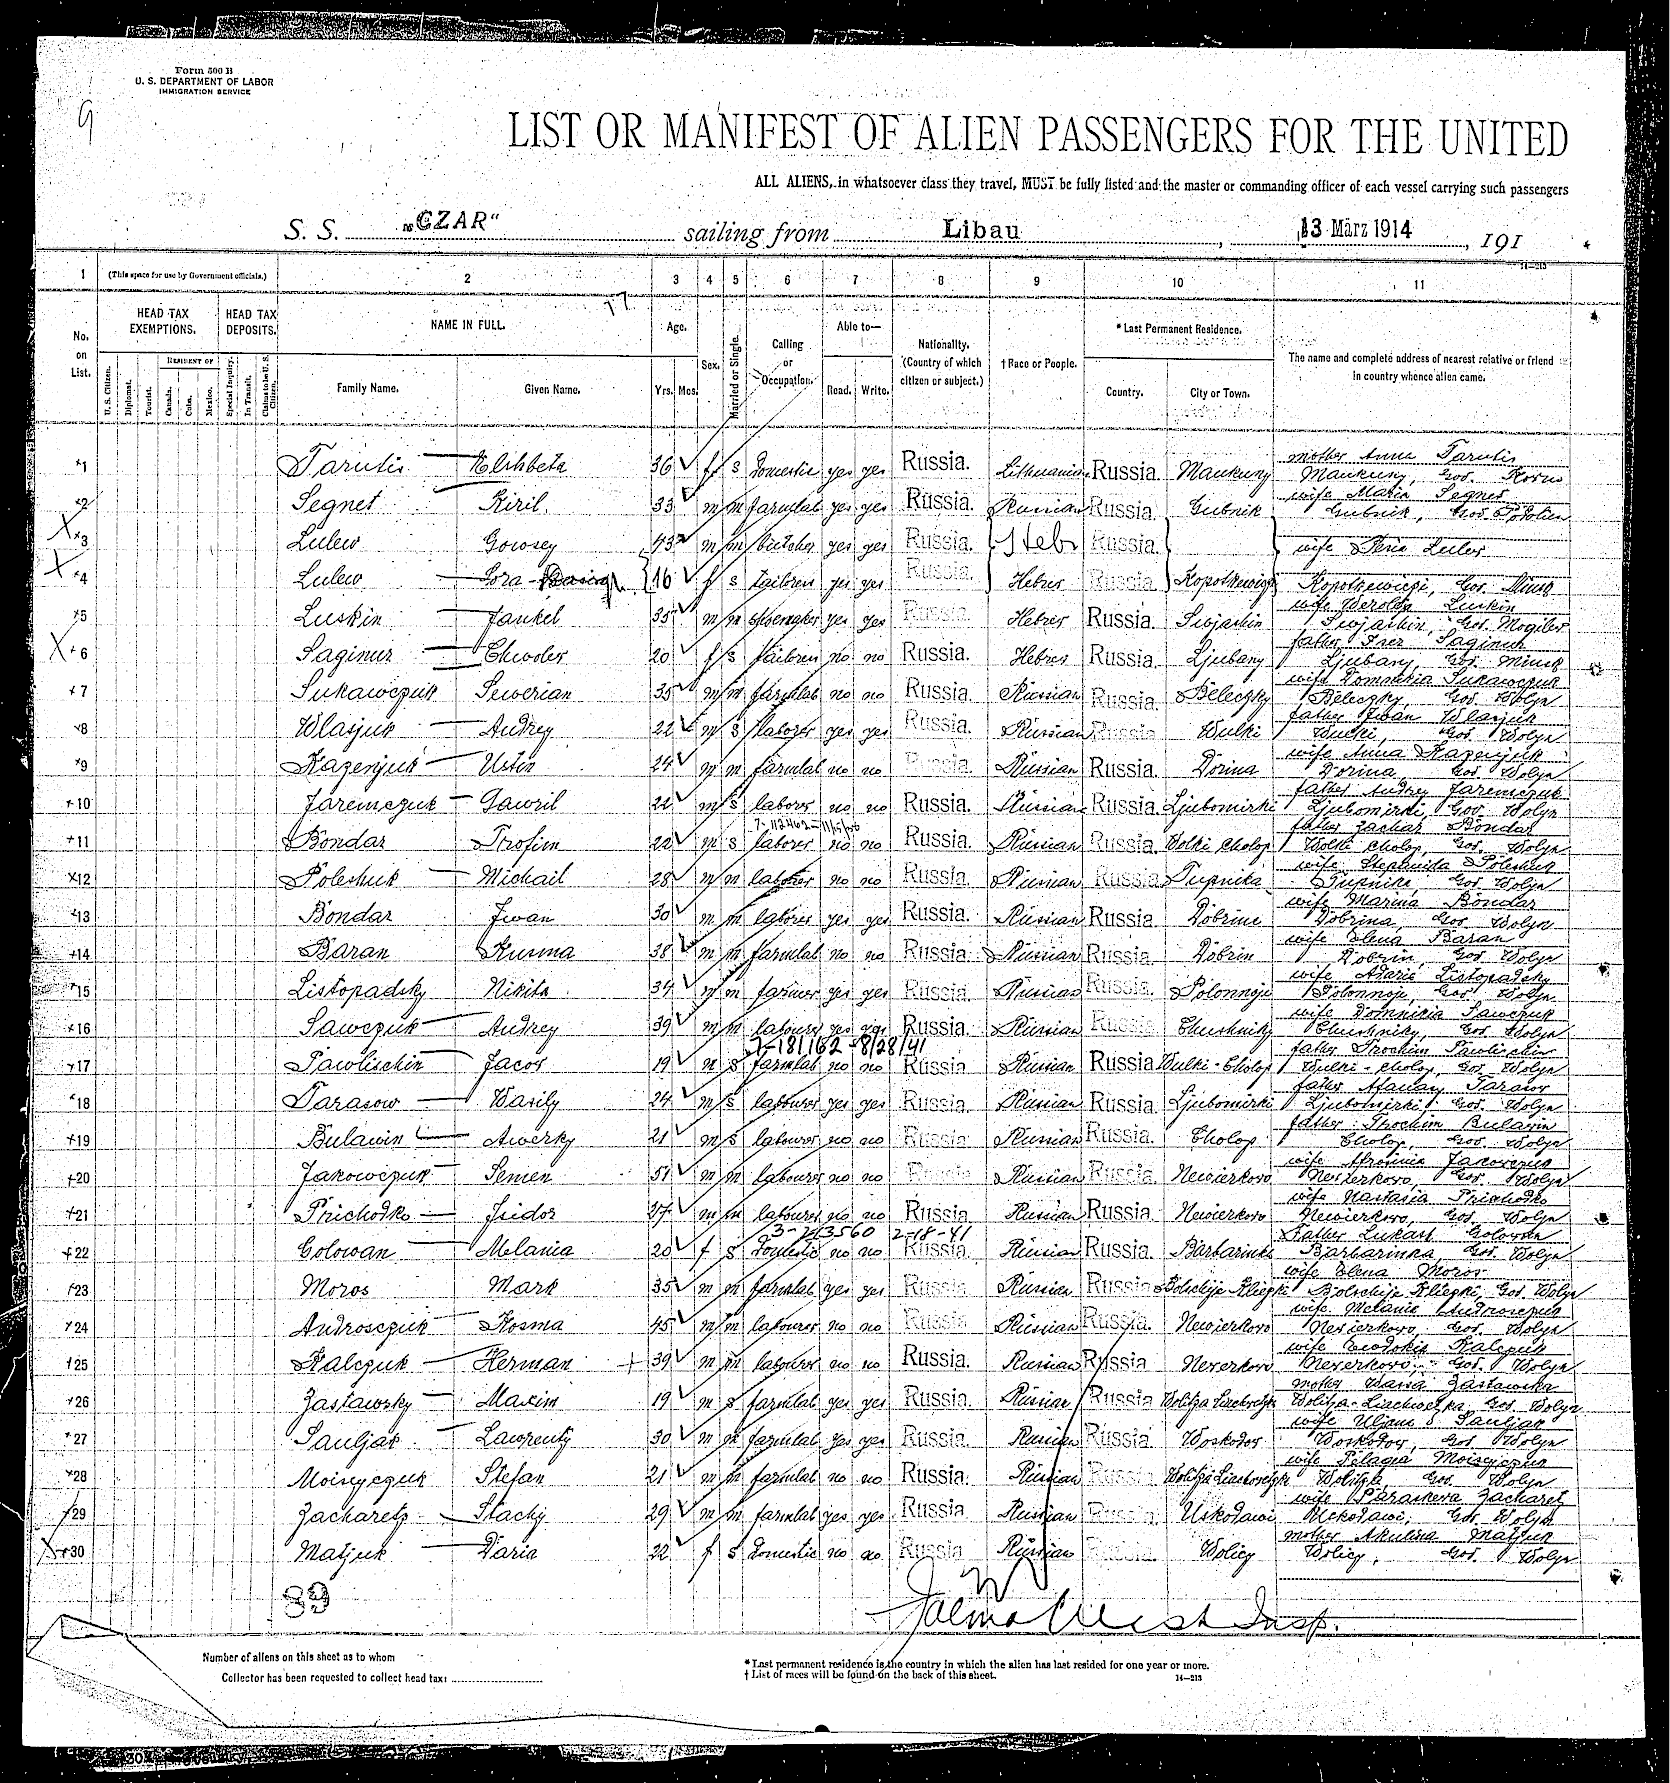 Form 500 B
U. S. DEPARTMENT OF LABOR
IMMIGRATION SERVICE
9
LIST OR MANIFEST OF ALIEN PASSENGERS FOR THE UNITED
ALL ALIENS, in whatsoever class they travel, MUST be fully listed and the master or commanding officer of each vessel carrying such passengers
S. S. „CZAR“ sailing from Libau, 13 März 1914, 191
14—213
1 (This space for use by Government officials.) 2 3 4 5 6 7 8 9 10 11
No. on List. HEAD TAX EXEMPTIONS. HEAD TAX DEPOSITS. NAME IN FULL. Age. Sex. Married or Single. Calling or Occupation. Able to— Nationality. (Country of which citizen or subject.) †Race or People. *Last Permanent Residence. The name and complete address of nearest relative or friend in country whence alien came.
U. S. Citizen. Diplomat. Tourist. RESIDENT OF Canada. Cuba. Mexico. Special Inquiry. In Transit. Claims to be U. S. Citizen. Family Name. Given Name. Yrs. Mos. Read. Write. Country. City or Town.
mother Anna Tarutis
1 Tarutis Elshbeta 36 f s domestic yes yes Russia. Lithuanian Russia Maukuny Maukuny, Gov. Kovno
wife Maria Segnet
2 Segnet Kiril 33 m m farmlab yes yes Russia. Russian Russia. Gubnik Gubnik, Gov.
3 Lulew 43 m m butcher yes yes Russia. Hebr Russia. wife Lulew
4 Lulew Sora 16 f s tailoress yes yes Russia. Hebrew Russia Kopotkewiczi Kopotkewiczi, Gov. Minsk
wife Luskin
5 Luskin Jankel 35 m m shoemaker yes yes Russia. Hebrew Russia. Swjashin Swjashin, Gov. Mogilev
father
6 Saginur 20 f s tailoress no no Russia. Hebrew Russia. Ljubany Ljubany, Gov. Minsk
wife Domnikia Sukawczuk
7 Sukawczuk Sewerian 35 m m farmlab no no Russia. Russian Russia. Beleczky Beleczky, Gov. Wolyn
father Iwan Wlasjuk
8 Wlasjuk Andrey 22 m s laborer yes yes Russia. Russian Russia Wulki Wulki, Gov. Wolyn
wife Anna Kazenjuk
9 Kazenjuk Ustin 24 m m farmlab no no Russia. Russian Russia. Dorina Dorina, Gov. Wolyn
father Andrey Jaremczuk
10 Jaremczuk Gawril 22 m s laborer no no Russia. Russian Russia. Ljubomirki Ljubomirki, Gov. Wolyn
father Zachar Bondar
11 Bondar Trofim 22 m s laborer no no Russia. Russian Russia. Wolki Cholop Wolki Cholop, Gov. Wolyn
wife Poleshuk
12 Poleshuk Michail 28 m m laborer no no Russia. Russian Russia Tupnika Tupnika, Gov. Wolyn
wife Marina Bondar
13 Bondar Iwan 30 m m laborer yes yes Russia. Russian Russia. Dobrine Dobrina, Gov. Wolyn
wife Elena Baran
14 Baran Kusma 38 m m farmlab no no Russia. Russian Russia. Dobrin Dobrin, Gov. Wolyn
wife Listopadsky
15 Listopadsky Nikita 34 m m farmer yes yes Russia. Russian Russia. Polonnoje Polonnoje, Gov. Wolyn
wife Domnikia Sawczuk
16 Sawczuk Andrey 39 m m labourer yes yes Russia. Russian Russia
7-181162 -8/28/41
17 Pawlischin Jacov 19 m s farmlab no no Russia Russian Russia Wulki-Cholop Wulki-Cholop, Gov. Wolyn
father Tarasow
18 Tarasow Wasily 24 m s labourer yes yes Russia. Russian Russia. Ljubomirki Ljubomirki, Gov. Wolyn
father Bulawin
19 Bulawin Awerky 21 m s labourer no no Russia. Russian Russia. Cholop Cholop, Gov. Wolyn
wife Jakowczuk
20 Jakowczuk Semen 51 m m labourer no no Russia. Russian Russia Newierkovo Newierkovo, Gov. Wolyn
wife Nastasia Prichodko
21 Prichodko Isidor 27 m m labourer no no Russia Russian Russia. Newierkovo Newierkovo, Gov. Wolyn
3-213560 2-18-41
Father Lukash Golowan
22 Golowan Melania 20 f s domestic no no Russia. Russian Russia. Barbarinka Barbarinka, Gov. Wolyn
wife Elena Moros
23 Moros Mark 35 m m farmlab yes yes Russia. Russian Russia Gov. Wolyn
wife Melanie Androsczuk
24 Androsczuk Kosma 45 m m labourer no no Russia. Russian Russia. Newierkovo Newierkovo, Gov. Wolyn
wife Kalczuk
25 Kalczuk Herman 39 m m labourer no no Russia. Russian Russia Neverkovo Neverkovo, Gov. Wolyn
mother Zastawska
26 Zastawsky Maxim 19 m s farmlab yes yes Russia. Russian Russia Gov. Wolyn
wife Uljana Sauljak
27 Sauljak Lawrenty 30 m m farmlab yes yes Russia. Russian Russia Woskodow Woskodow, Gov. Wolyn
wife Pelagia Moiseyczuk
28 Moiseyczuk Stefan 21 m m farmlab no no Russia. Russian Russia. Wolitza, Gov. Wolyn
wife Paraskewa Zacharetz
29 Zacharetz Stachy 29 m m farmlab yes yes Russia Russian Russia Uskodawi Gov. Wolyn
mother Akulina Matjuk
30 Matjuk Daria 22 f s domestic no no Russia Russian Russia Wolicy Wolicy, Gov. Wolyn
89
Insp.
Number of aliens on this sheet as to whom
Collector has been requested to collect head tax:
* Last permanent residence is the country in which the alien has last resided for one year or more.
† List of races will be found on the back of this sheet.
14—213